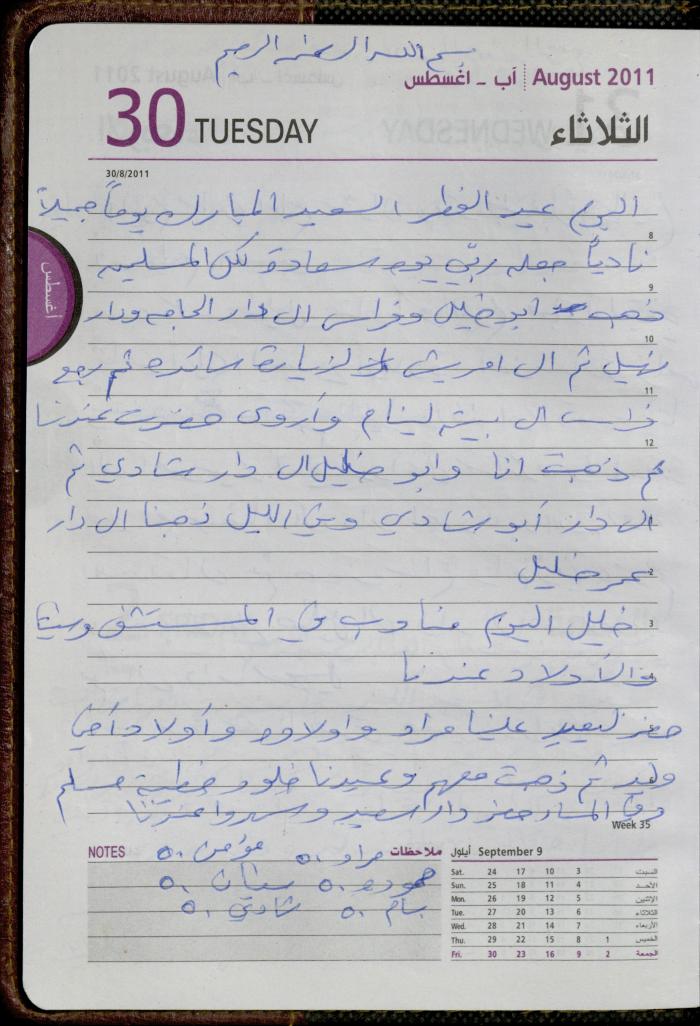 بسم الله الرحمن الرحيم
آب - اغسطس August 2011
30 TUESDAY الثلاثاء
30/8/2011
اليوم عيد الفطر السعيد المبارك يوماً جميلاً
8
نادياً جعله ربّي يوم سعادة لكل المسلمين
9
ذهب ابو خليل وفراس ال دار الحاجه ودار
10
نهيل ثم ال لزيارة سائده ثم رجع
11
فراس ال بيته لينام وأروى حضرت عندنا
12
ثم ذهبت انا وابو خليل ال دار شادي ثم
ال دار أبو شادي وفي الليل ذهبنا ال دار
2
عمر خليل
3
خليل اليوم مناوب في المستشفى
4
والأولاد عندنا
5
حضر ليعيد علينا مراد واولاده وأولاد أخي
6
وليد ثم ذهبت معهم وعيدنا خلود خطيبة مسلم
وفي المساء حضر دار اسعيد وسهروا عندنا
Week 35
أغسطس
NOTES ملاحظات
مراد ٥٠ مؤمن ٥٠
حموده ٥٠ ٥٠
بسام ٥٠ شادي ٥٠
أيلول September 9
Sat. 24 17 10 3 السبت
Sun. 25 18 11 4 الأحد
Mon. 26 19 12 5 الإثنين
Tue. 27 20 13 6 الثلاثاء
Wed. 28 21 14 7 الأربعاء
Thu. 29 22 15 8 1 الخميس
Fri. 30 23 16 9 2 الجمعة